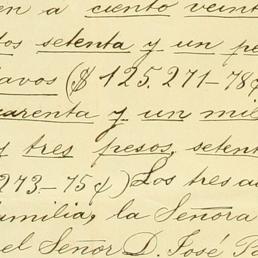 en a ciento veint
tos setenta y un pe
avos ($ 125.271-78¢
uarenta y un mil
y tres pesos, setent
273-75¢) Los tres ac
familia, la Señora
el Señor D. José Pa